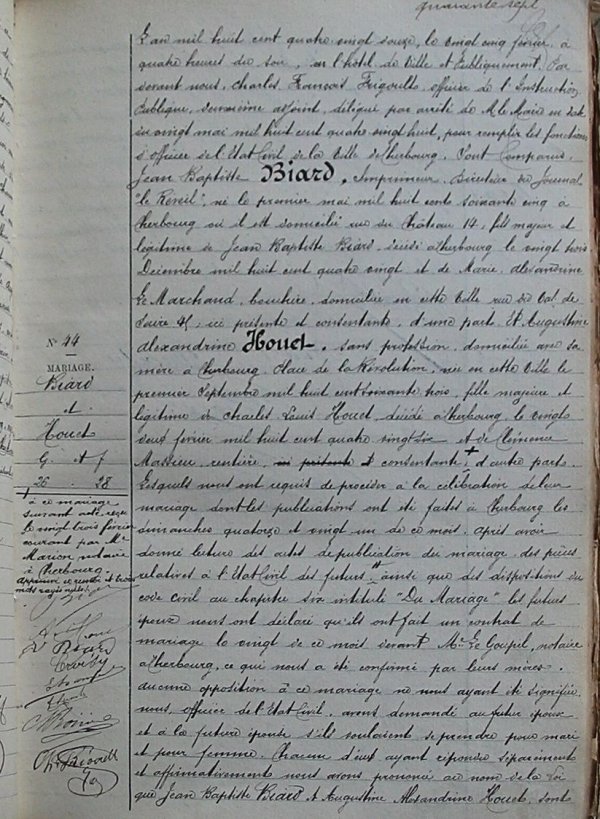 quarante sept
L'an mil huit cent quatre vingt douze, le vingt cinq février à
quatre heures du soir, en l'hôtel de Ville et Publiquement. Par
devant nous, Charles François Frigoult, officier de l'Instruction
Publique, deuxième adjoint, délégué par arrêté de M. le Maire en date
du vingt mai mil huit cent quatre vingt huit, pour remplir les fonctions
d'officier de l'Etat Civil de la Ville de Cherbourg, Sont Comparus,
Jean Baptiste Biard, Imprimeur, Directeur du Journal
"le Réveil", né le premier mai mil huit cent soixante cinq à
Cherbourg où il est domicilié rue du Château 14, fils majeur et
légitime de Jean Baptiste Biard décédé à Cherbourg le vingt trois
Décembre mil huit cent quatre vingt et de Marie, Alexandrine
Le Marchand, bouchère, domiciliée en cette Ville rue du Val de
Saire 45, ici présente et consentante, d'une part. Et Augustine
Alexandrine Houet, sans profession, domiciliée avec sa
mère à Cherbourg, Place de la Révolution, née en cette Ville le
premier Septembre mil huit cent soixante trois, fille majeure et
légitime de Charles Louis Houet, décédé à Cherbourg, le vingt
deux février mil huit cent quatre vingt six et de Clémence
Massieu, rentière, ici présente et consentante + d'autre part.
Lesquels nous ont requis de procéder à la célébration de leur
mariage dont les publications ont été faites à Cherbourg les
dimanches quatorze et vingt un de ce mois. Après avoir
donné lecture des actes de publication du mariage, des pièces
relatives à l'Etat Civil des futurs, ainsi que des dispositions du
code civil au chapitre six intitulé "Du Mariage" les futurs
époux nous ont déclaré qu'ils ont fait un contrat de
mariage le vingt de ce mois devant Me Le Goupil, notaire
à Cherbourg, ce qui nous a été confirmé par leurs mères.
Aucune opposition à ce mariage ne nous ayant été signifiée,
nous, officier de l'Etat Civil, avons demandé au futur époux
et à la future épouse s'ils voulaient se prendre pour mari
et pour femme. Chacun d'eux ayant répondu séparément
et affirmativement nous avons prononcé au nom de la Loi
que Jean Baptiste Biard et Augustine Alexandrine Houet, sont
No 44
MARIAGE.
Biard
et
Houet
G. et f
26 . 28
+
à ce mariage
suivant acte reçu
le vingt trois février
courant par Me
Marion notaire
à Cherbourg.
Approuvé ce renvoi et trois
mots rayés nuls.